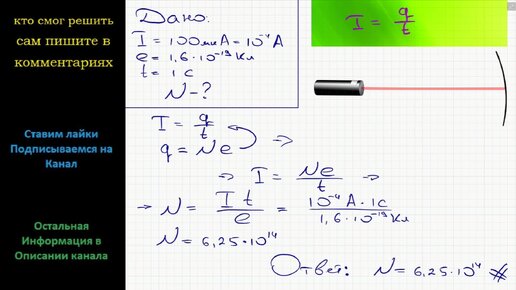 кто смог решить
сам пишите в
комментариях
Ставим лайки
Подписываемся на
Канал
Остальная
Информация в
Описании канала
Дано:
I = 100мкА = 10⁻⁴ А
e = 1,6·10⁻¹⁹ Кл
t = 1 с
N - ?
I = q/t
I = q/t
q = Ne ⇒
⇒ I = Ne/t ⇒
→ N = It/e = 10⁻⁴ А · 1с / 1,6·10⁻¹⁹ Кл
N = 6,25·10¹⁴
Ответ: N = 6,25·10¹⁴